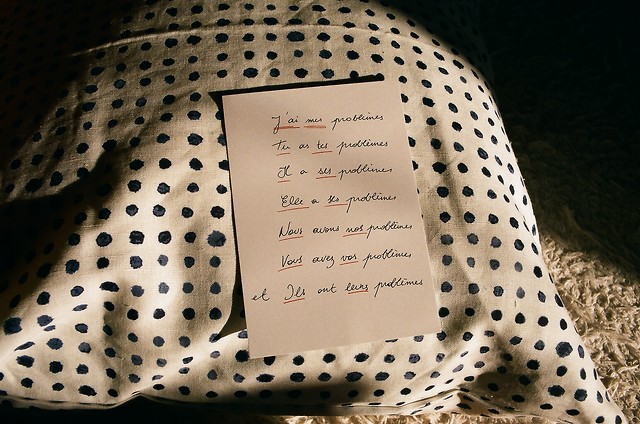 J'ai mes problèmes
Tu as tes problèmes
Il a ses problèmes
Elle a ses problèmes
Nous avons nos problèmes
Vous avez vos problèmes
et Ils ont leurs problèmes